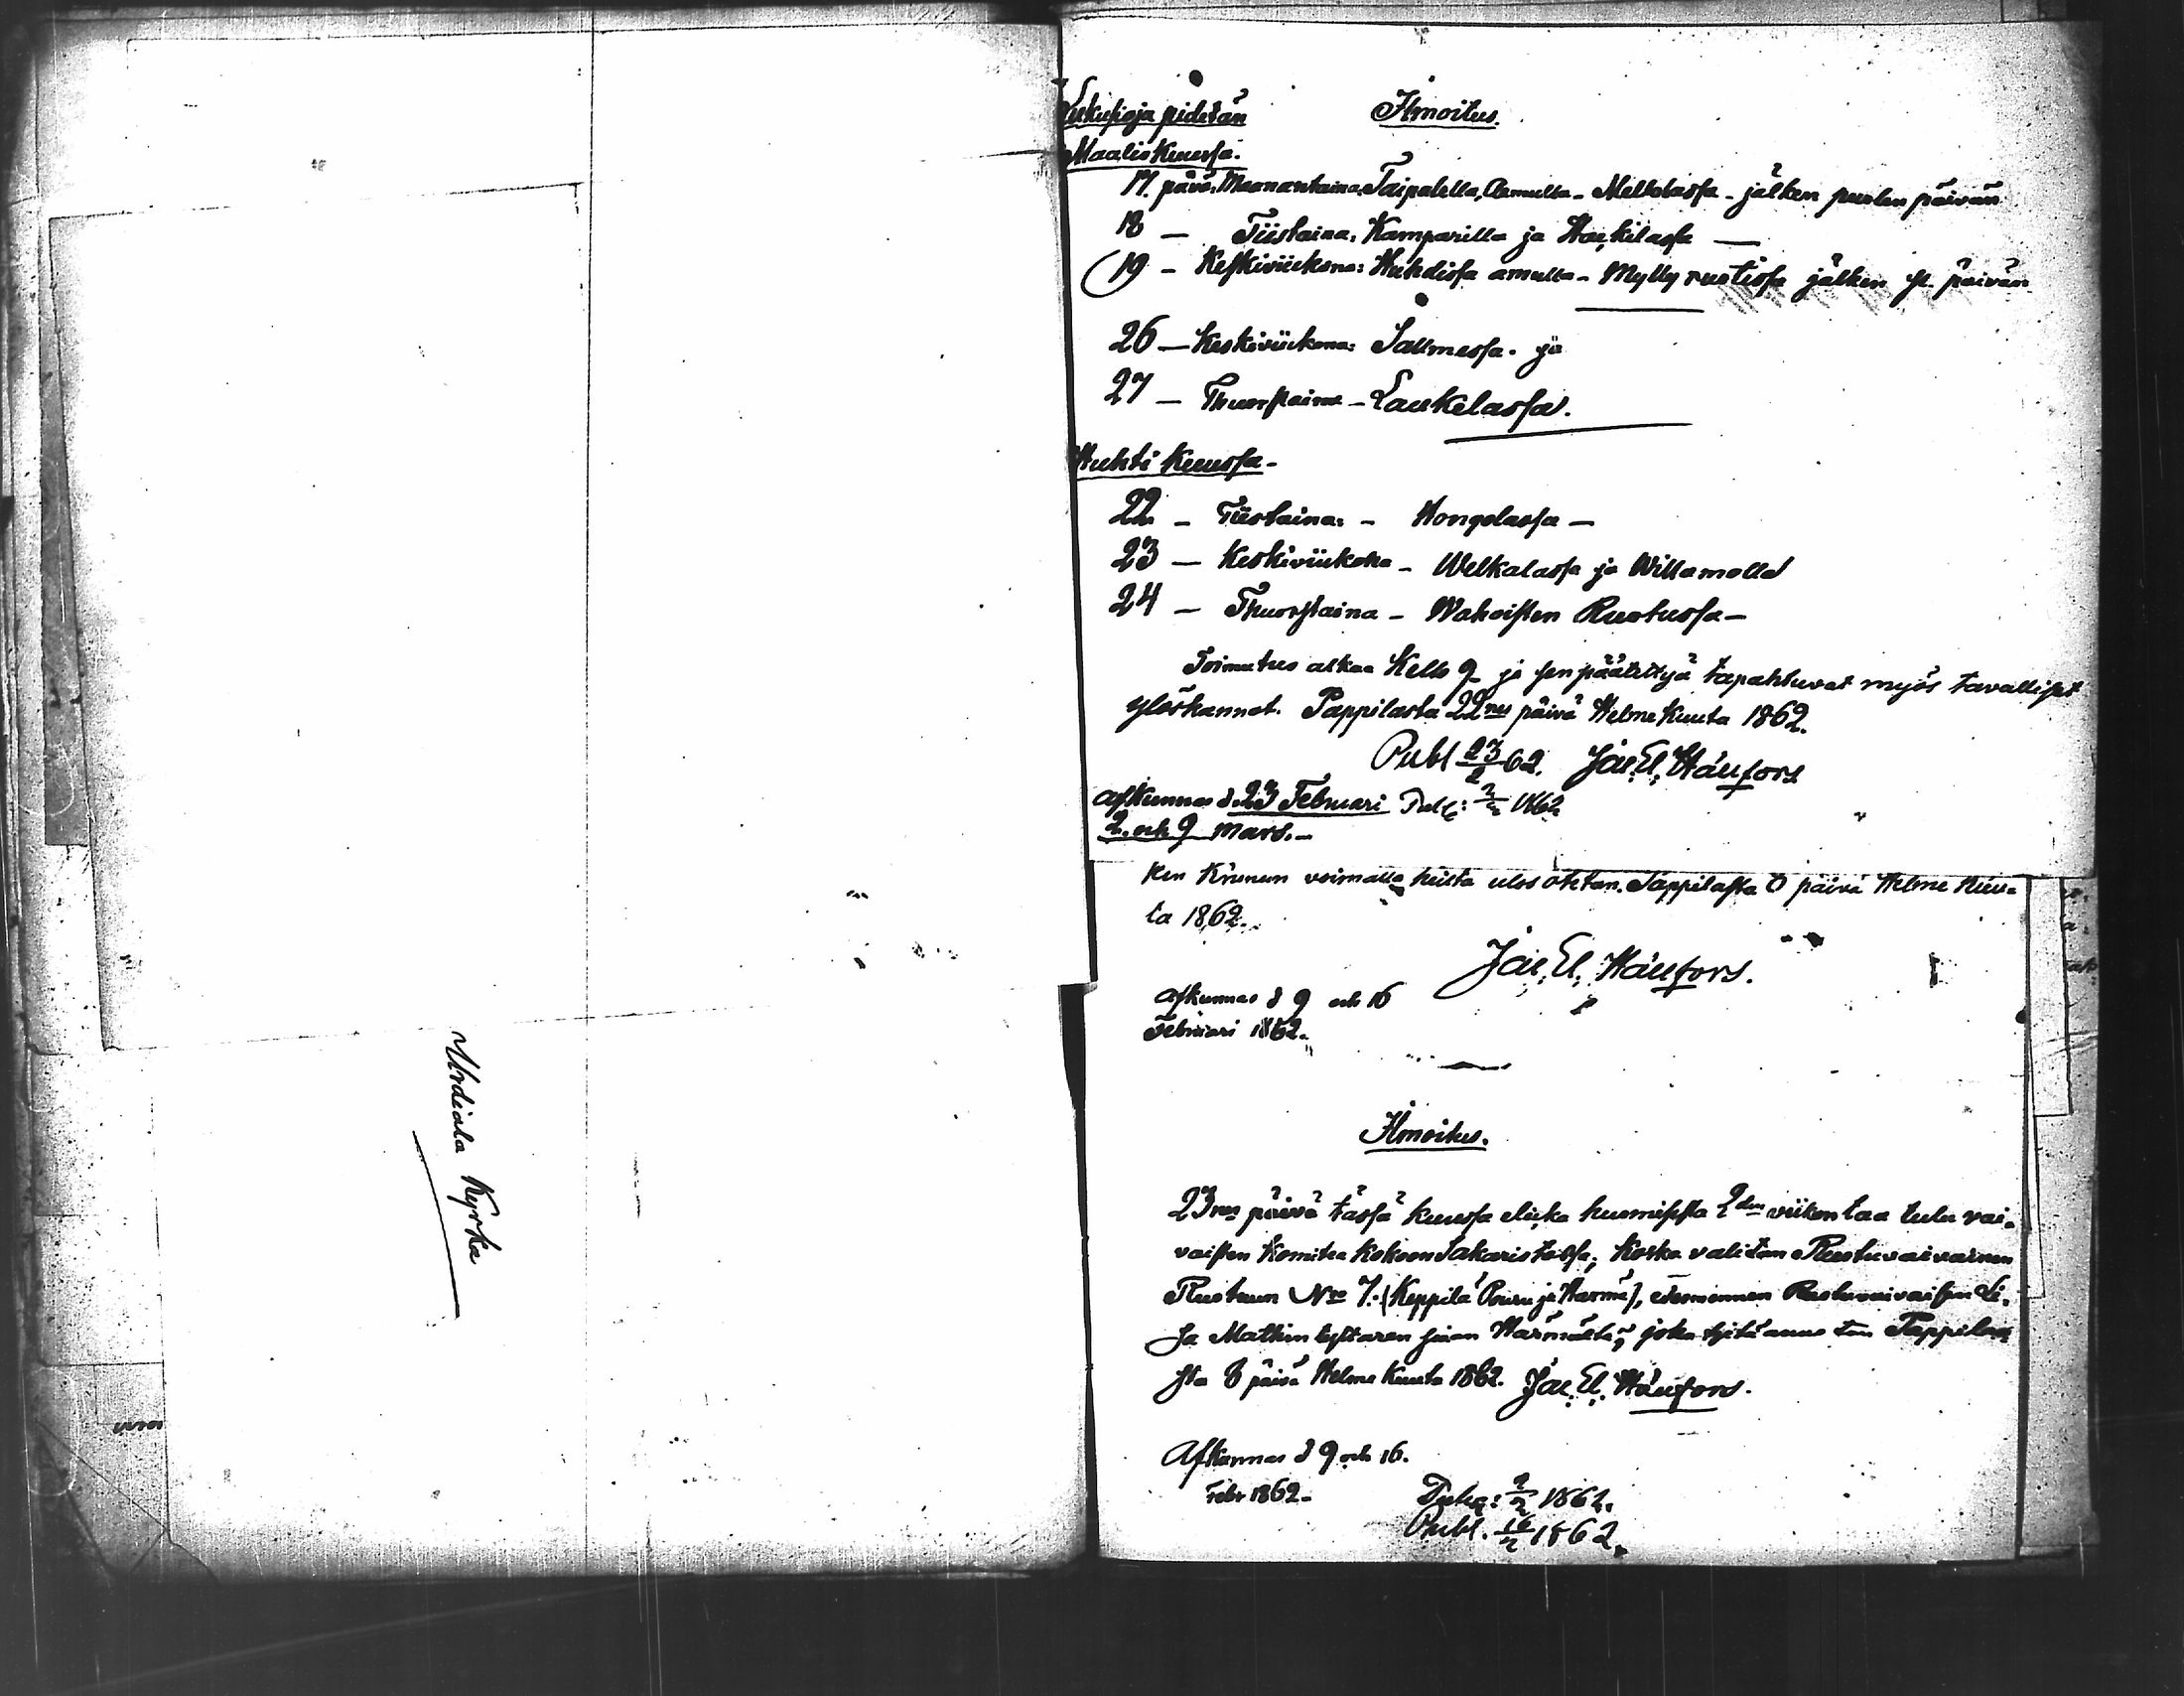 Urdiala Kyrka
Lukusioja pidetän
Ilmoitus.
Maalis Kuussa.
17. päivä, Maanantaina, Taipalella, Aamulla - Mellolassa - jälken puolen päivän
18 — Tiistaina, Kamparilla ja Haukilassa —
19 - Keskiviikona: Huhdissa amulla - Mylly rustissa jälken p. päivän
26 — Keskiviikona: Salmessa. ja
27 — Thuorstaina - Laukelassa.
Huhti Kuussa -
22 - Tiistaina: - Hongolassa —
23 — Keskiviikona - Welkalassa ja Willamolla
24 — Thuorstaina - Wahoisten Ruotussa —
Toimitus alkaa Kello 9 ja sen päätettyä tapahtuvat myös tavalliset
ylöskannot. Pappilasta 22nes päivä Helme Kuuta 1862.
Publ 23/2 62. Jac. El. Häufors
Afkunnas d. 23 Februari Publ: 2/2 1862
2. och 9 Mars. -
ken Krunun voimalla heiltä ulos otetan. Pappilasta 8 päivä Helme Kuu-
ta 1862.
Jac. El. Häufors.
Afkunnas d 9 och 16
Februari 1862.
Ilmoitus.
23nes päivä tässä kuussa eli, ka huomisesta 2den viikon taa tulee vai-
vaisten Komitea Kokoon Sakaristossa; Koska valitan Ruotuvaivainen
Ruotuun Nro 7. (Keppilä Pouru ja Harmä), edesmennen Ruotuvaivaisen Li-
sa Matkin tyttären siaan Harmältä, joka tytä annetan Pappila-
sta 8 päivä Helme Kuuta 1862. Jac. El. Häufors.
Afkunnas d 9 och 16.
Febr 1862.
Publ: 9/2 1862.
Publ. 16/2 1862.